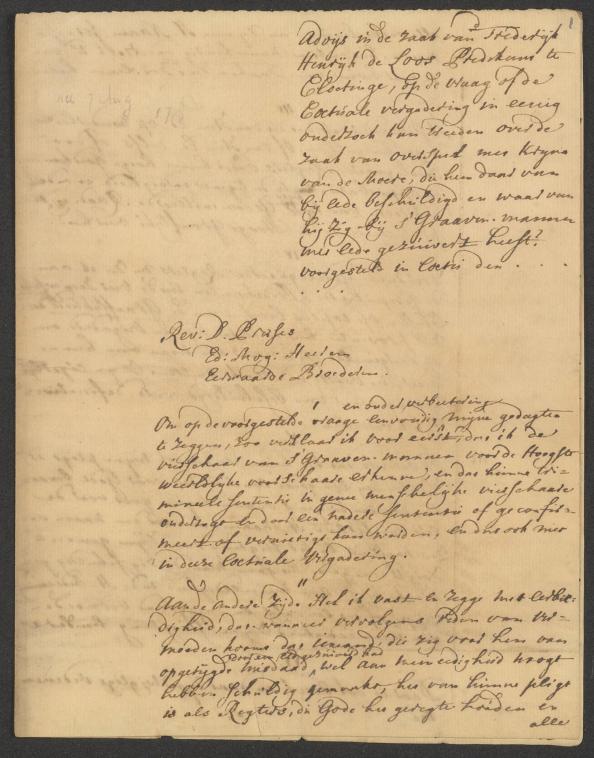 1
Advijs in de zaak van Frederijk
Henrijk de Loos Predikant te
Cloetinge, op de vraag of de
Coetuale vergadering in eenig
onderzoek kan treeden over de
zaak van overspel met Kryna
van de Moere, die hem daar van
bij Eede beschuldigd en waar van
hij zig bij 's Graaven mannen
met Eede gezuivert heeft?
voorgestelt in Coetu den . . .
. . .
Rev: D. Praeses
Ed: Mog: Heeren
Eerwaarde Broederen.
en onder verbeetering
Om op de voorgestelde vraage eenvoudig mijne gedagten
te zeggen, zoo verklaar ik voor eerst, dat ik de
vierschaar van 's Graaven mannen voor de Hoogste
weereldlijke vierschaare erkenne, en dat hunne cri-
mineele sententie in geene menschelijke vierschaare
onderzogt en door een nadere sententie of geconfir-
meert of vernietigt kan worden, en dus ook niet
in deeze Coetuale vergadering.
Aan de andere zijde stel ik vast en zegge met eerbie-
digheid, dat wanneer vervolgens reden van ver-
moeden komt dat iemand, die zig voor hen van
door een Eed gezuivert had
opgetijgde misdaad, wel aan meineedigheid mogt
hebben schuldig gemaakt, het van hunne pligt
is als Regters, die Gode het geregte houden en
alle